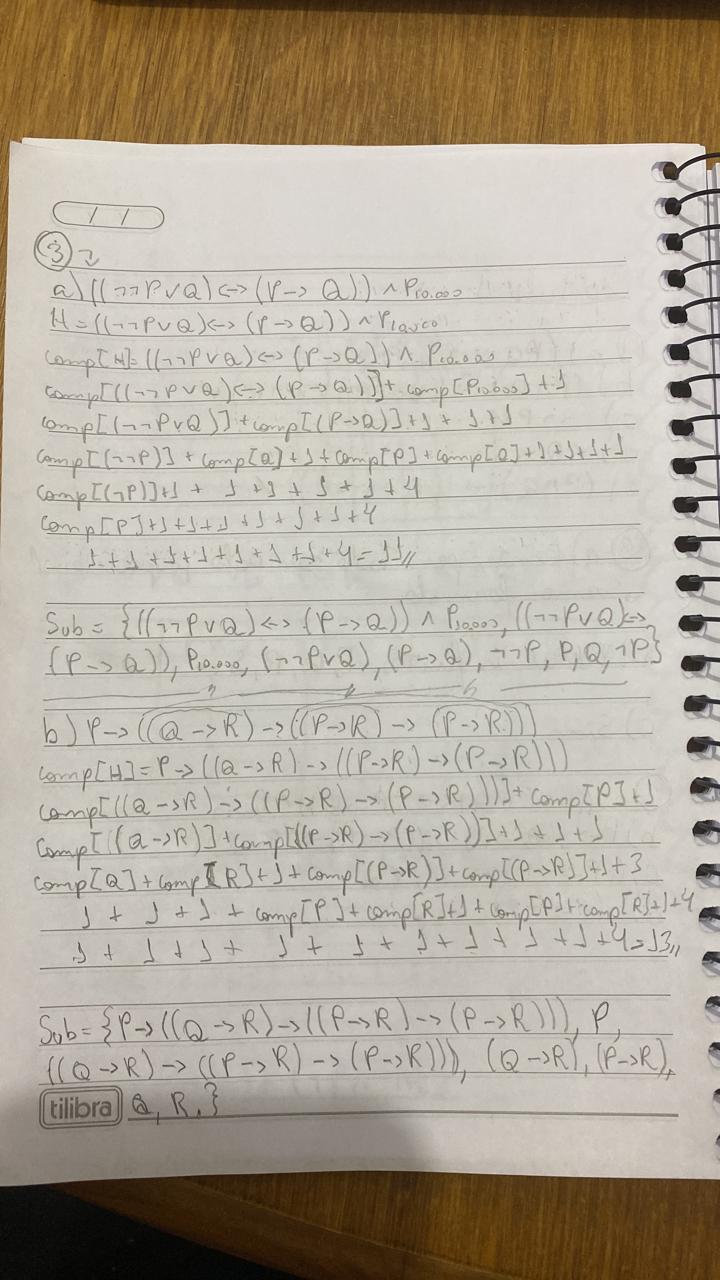 / /
3
a) ((¬¬P∨Q) <-> (P -> Q)) ∧ P10.000
H = ((¬¬P∨Q) <-> (P -> Q)) ∧ P10.000
comp[H] = ((¬¬P∨Q) <-> (P -> Q)) ∧ P10.000
comp[((¬¬P∨Q) <-> (P -> Q))] + comp[P10.000] + 1
comp[(¬¬P∨Q)] + comp[(P->Q)] + 1 + 1 + 1
comp[(¬¬P)] + comp[Q] + 1 + comp[P] + comp[Q] + 1 + 1 + 1 + 1
comp[(¬P)] + 1 + 1 + 1 + 1 + 1 + 4
comp[P] + 1 + 1 + 1 + 1 + 1 + 1 + 4
1 + 1 + 1 + 1 + 1 + 1 + 1 + 4 = 11//
Sub = {((¬¬P∨Q) <-> (P -> Q)) ∧ P10.000, ((¬¬P∨Q) <->
(P -> Q)), P10.000, (¬¬P∨Q), (P -> Q), ¬¬P, P, Q, ¬P}
b) P -> ((Q -> R) -> ((P -> R) -> (P -> R)))
comp[H] = P -> ((Q -> R) -> ((P -> R) -> (P -> R)))
comp[((Q -> R) -> ((P -> R) -> (P -> R)))] + comp[P] + 1
comp[(Q -> R)] + comp[((P -> R) -> (P -> R))] + 1 + 1 + 1
comp[Q] + comp[R] + 1 + comp[(P -> R)] + comp[(P -> R)] + 1 + 3
1 + 1 + 1 + comp[P] + comp[R] + 1 + comp[P] + comp[R] + 1 + 4
1 + 1 + 1 + 1 + 1 + 1 + 1 + 1 + 1 + 4 = 13//
Sub = {P -> ((Q -> R) -> ((P -> R) -> (P -> R))), P,
((Q -> R) -> ((P -> R) -> (P -> R))), (Q -> R), (P -> R),
tilibra Q, R, }